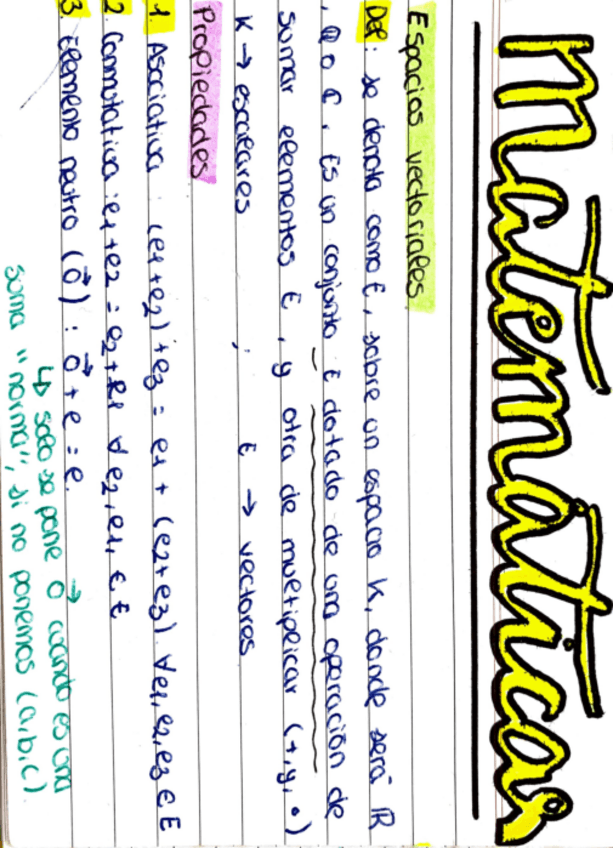 Matemáticas
Espacios vectoriales
DEF: se denota como E, sobre un espacio K, donde será ℝ
, ℚ o ℂ. Es un conjunto E dotado de una operación de
sumar elementos E, y otra de multiplicar (+, y, •)
K → escalares ; E → vectores
Propiedades
1. Asociativa: (e1+e2)+e3 = e1+(e2+e3) ∀e1,e2,e3 ∈ E
2. Conmutativa: e1+e2 = e2+e1 ∀ e2,e1, ∈ E
3. Elemento neutro (0⃗): 0⃗ + e = e.
↳ solo se pone 0⃗ cuando es una
suma "norma", si no ponemos (a,b,c)